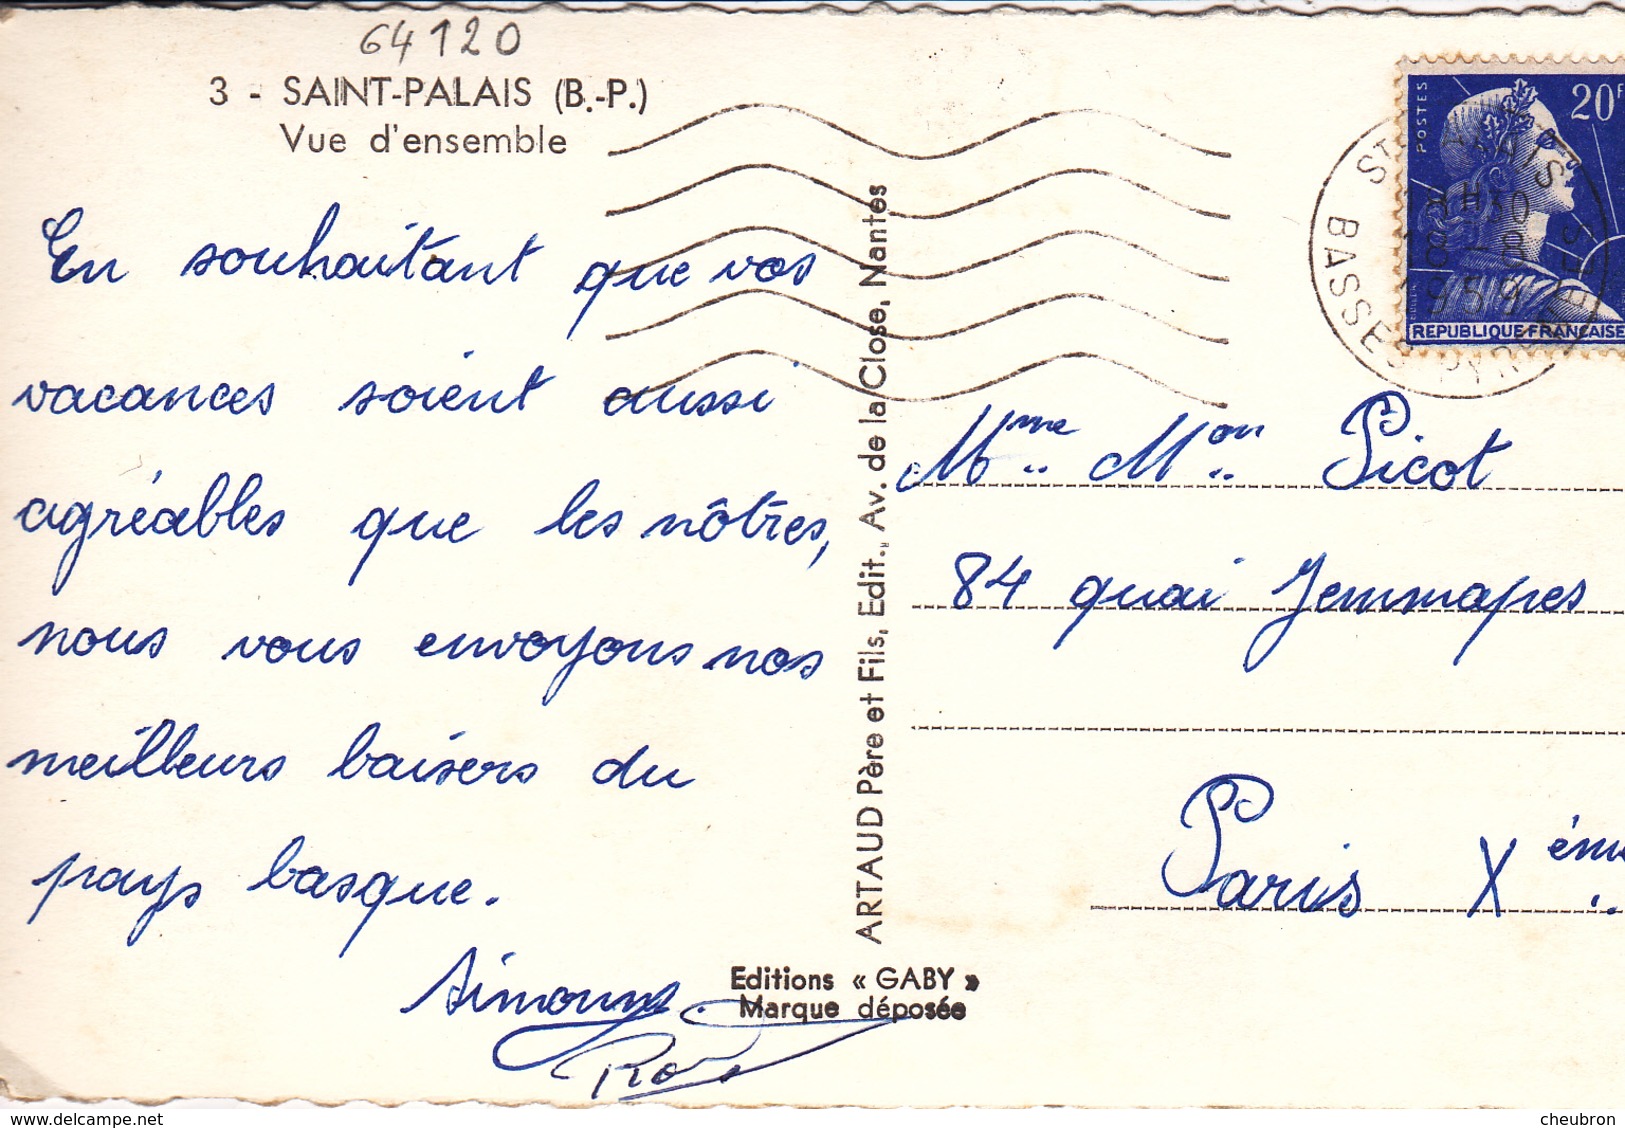 64120
3 - SAINT-PALAIS (B.-P.)
Vue d'ensemble
En souhaitant que vos
vacances soient aussi
agréables que les nôtres,
nous vous envoyons nos
meilleurs baisers du
pays basque.
ARTAUD Père et Fils, Edit., Av. de la Close, Nantes
Editions « GABY »
Marque déposée
POSTES
20F
REPUBLIQUE FRANÇAISE
BASSES PYRENEES
1959
Mme Mon Picot
84 quai Jemmapes
Paris Xème
delcampe.net
cheubron